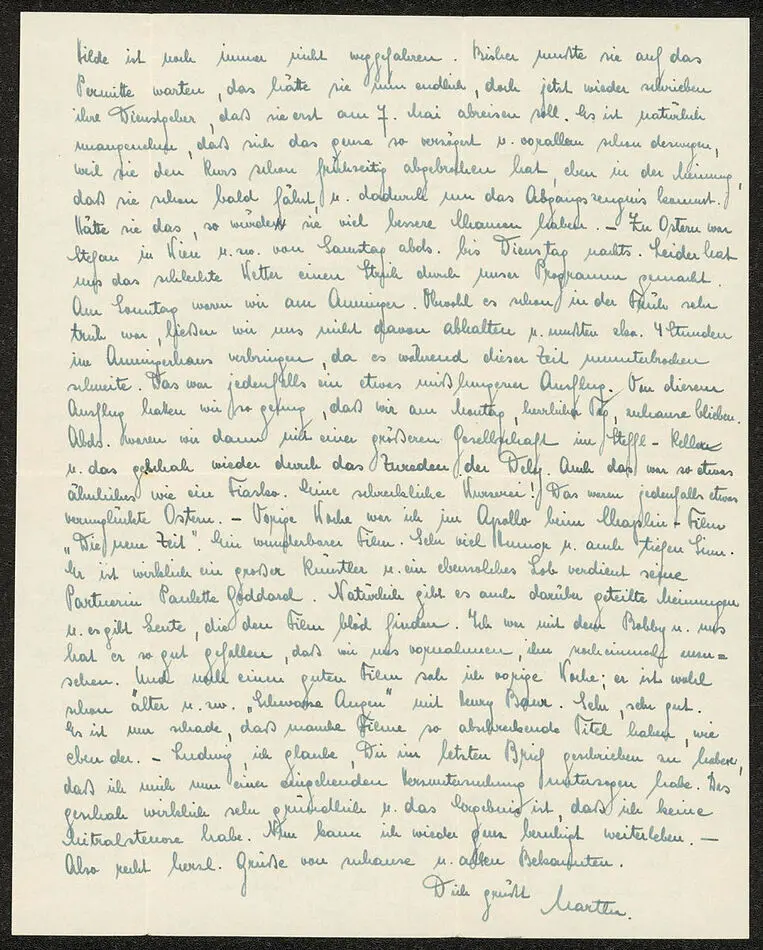 Hilde ist noch immer nicht weggefahren. Bisher mußte sie auf das
Permitte warten, das hätte sie nun endlich, doch jetzt wieder schrieben
ihre Dienstgeber, daß sie erst am 7. Mai abreisen soll. Es ist natürlich
unangenehm, daß sich das ganze so verzögert u. vorallem schon deswegen,
weil sie den Kurs schon frühzeitig abgebrochen hat, eben in der Meinung,
daß sie schon bald fährt, u. dadurch um das Abgangszeugnis kommt.
Hätte sie das, so würden sie viel bessere Chancen haben. – Zu Ostern war
Stefan in Wien u. zw. von Samstag abds. bis Dienstag nachts. Leider hat
uns das schlechte Wetter einen Strich durch unser Programm gemacht.
Am Sonntag waren wir am Anninger. Obwohl es schon in der Früh sehr
trüb war, ließen wir uns nicht davon abhalten u. mußten eba. 4 Stunden
im Anningerhaus verbringen, da es während dieser Zeit ununterbrochen
schneite. Das war jedenfalls ein etwas mißlungener Ausflug. Von diesem
Ausflug hatten wir so genug, daß wir am Montag, herrlicher Tag, zuhause blieben.
Abds. waren wir dann mit einer größeren Gesellschaft im Steffl-Keller
u. das geschah wieder durch das Zureden der Dely. Auch das war so etwas
ähnliches wie ein Fiasko. Eine schreckliche Wurzerei! Das waren jedenfalls etwas
verunglückte Ostern. – Vorige Woche war ich im Apollo beim Chaplin-Film
„Die neue Zeit". Ein wunderbarer Film. Sehr viel Humor u. auch tiefen Sinn.
Er ist wirklich ein großer Künstler u. ein ebensolches Lob verdient seine
Partnerin Paulette Goddard. Natürlich gibt es auch darüber geteilte Meinungen
u. es gibt Leute, die den Film blöd finden. Ich war mit dem Bobby u. uns
hat er so gut gefallen, daß wir uns vornahmen, ihn nocheinmal anzu=
sehen. Und noch einen guten Film sah ich vorige Woche; er ist wohl
schon älter u. zw. „Schwarze Augen" mit Henry Baur. Sehr, sehr gut.
Es ist nur schade, daß manche Filme so abschreckende Titel haben, wie
eben der. – Ludwig, ich glaube, Dir im letzten Brief geschrieben zu haben,
daß ich mich nun einer eingehenden Herzuntersuchung unterzogen habe. Das
geschah wirklich sehr gründlich u. das Ergebnis ist, daß ich keine
Mitralstenose habe. Nun kann ich wieder ganz beruhigt weiterleben. –
Also recht herzl. Grüße von zuhause u. allen Bekannten.
Dich grüßt Martha.